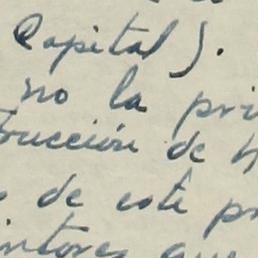 Capital).
no la pri
trucción de h
s de este pr
intores que